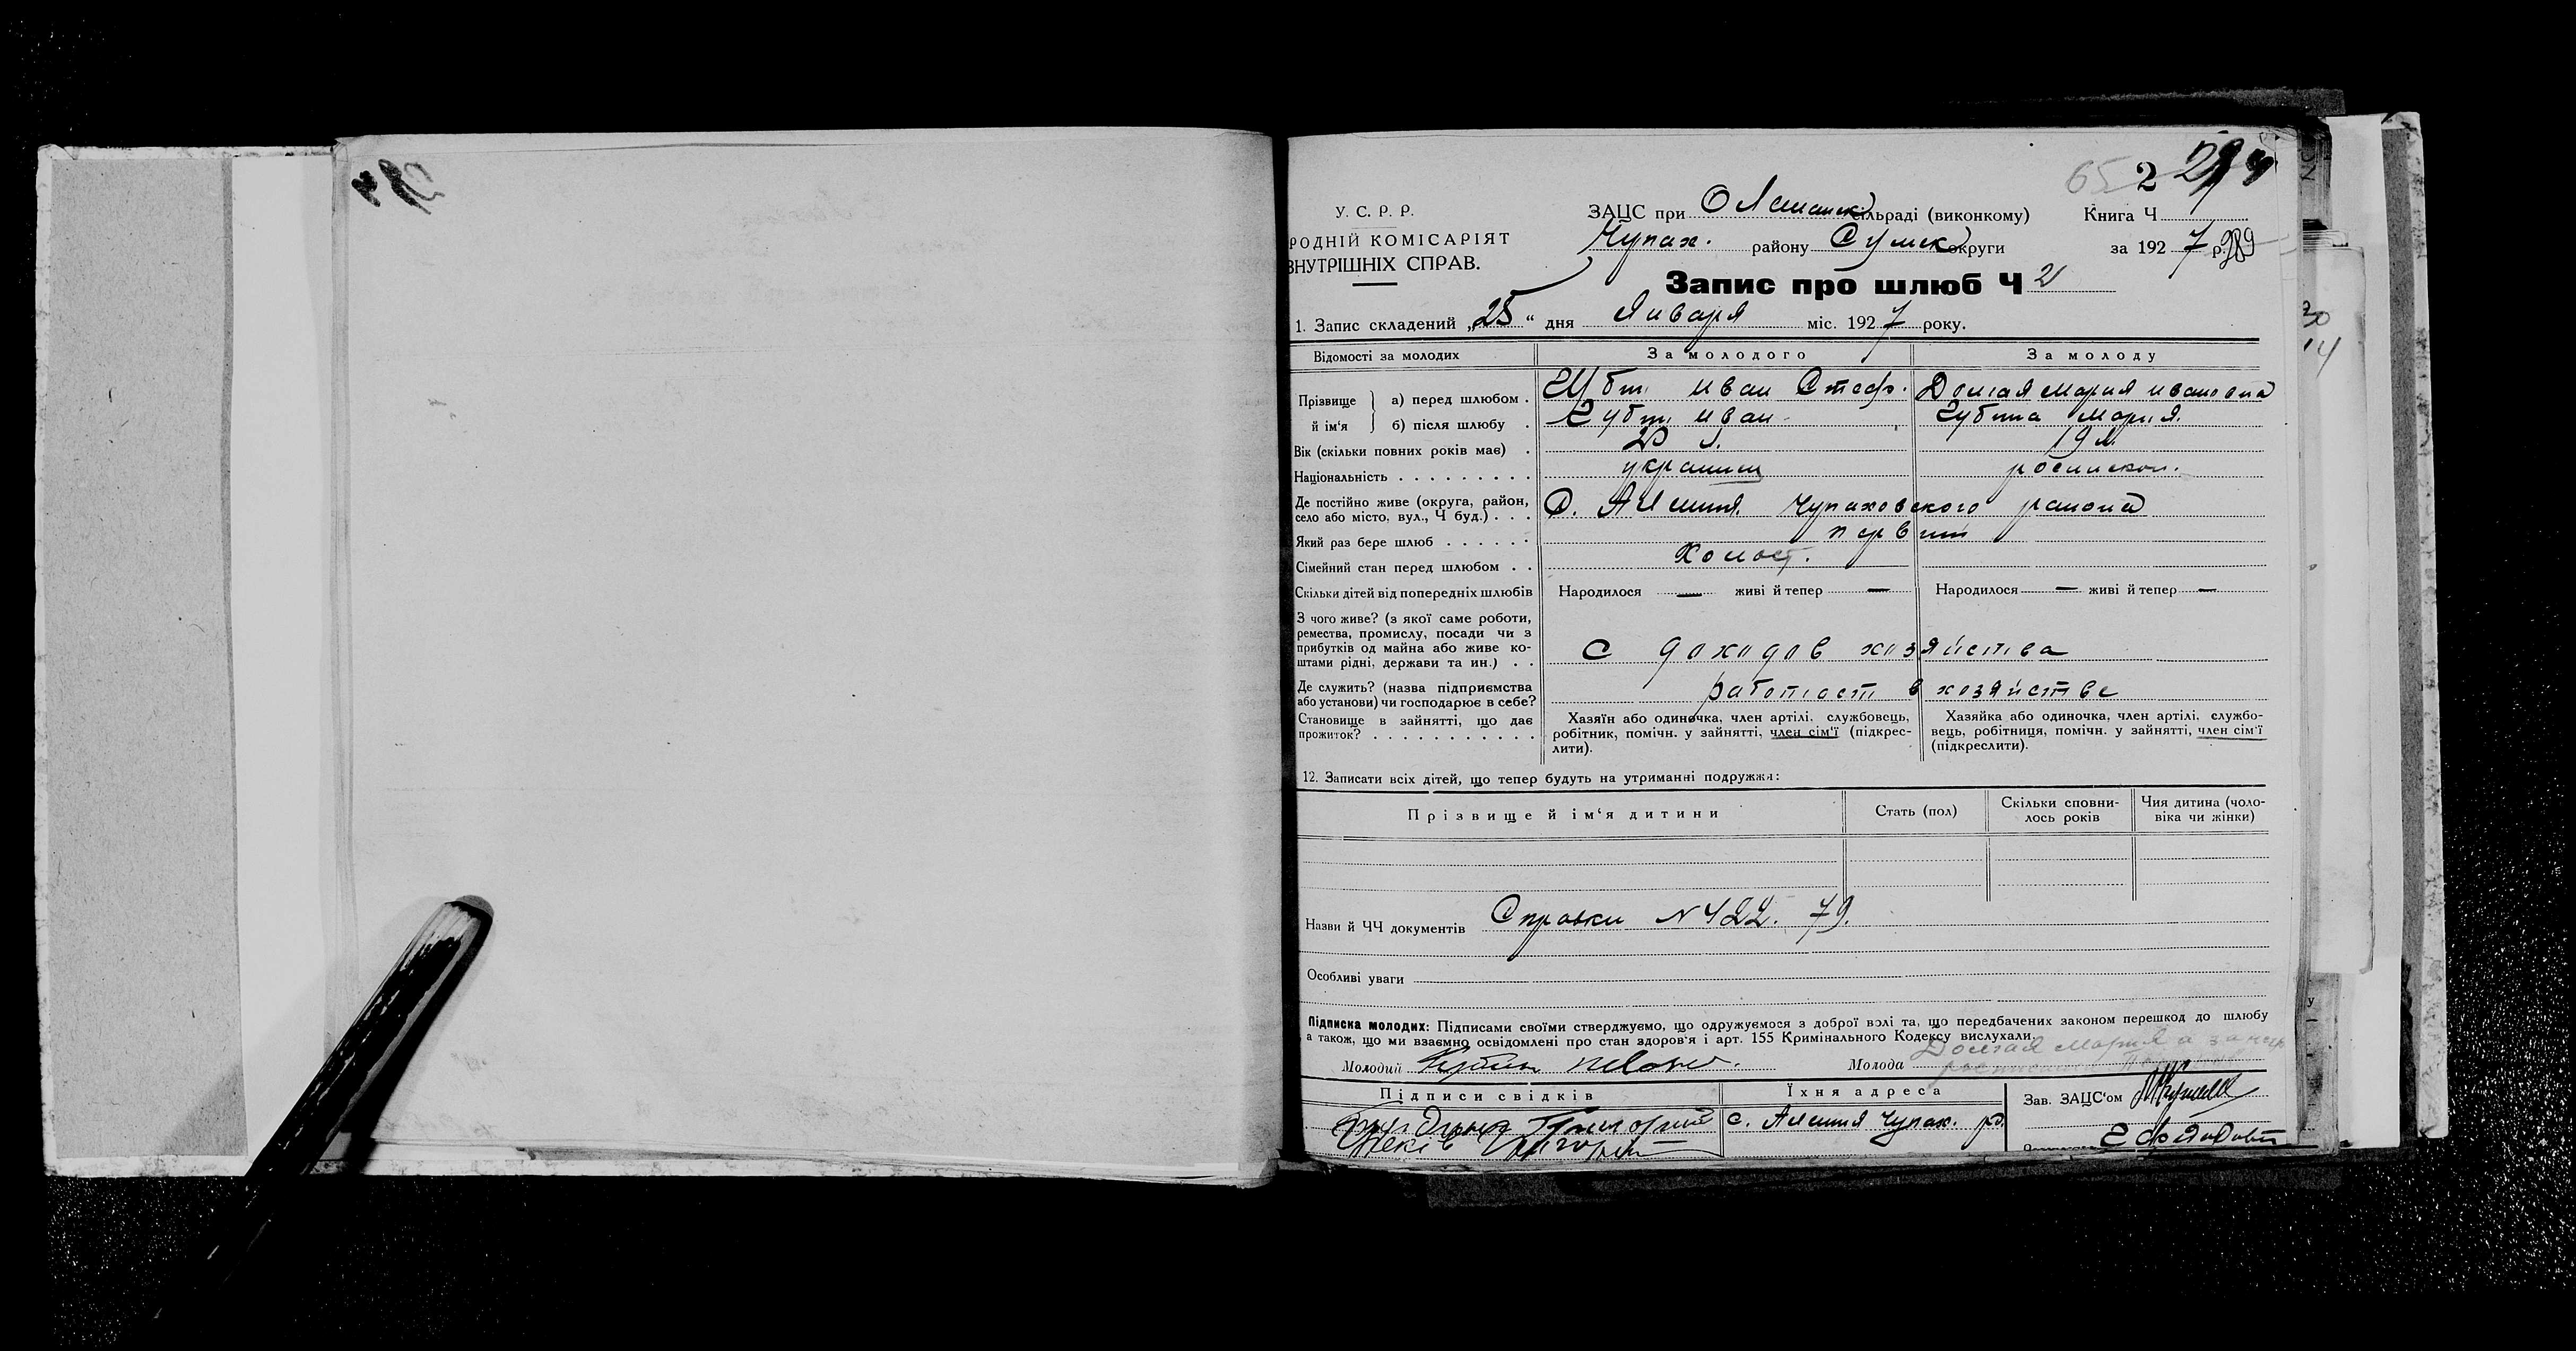 65 2
У. С. Р. Р.
РОДНІЙ КОМІСАРІЯТ
ВНУТРІШНІХ СПРАВ.
ЗАЦС при сільраді (виконкому) Книга Ч
Чупах. району Сумск округи за 1927 р. 989
Запис про шлюб Ч 2
1. Запис складений „25“ дня Января міс. 1927 року.
Відомості за молодих За молодого За молоду
Прізвище й ім‘я а) перед шлюбом . Иван Стеф. Долгая Мария Ивановна
б) після шлюбу . Губин Иван Губина Мария.
Вік (скільки повних років має) . 20 л. 19 л.
Національність . . . . . . . . . украинц
Де постійно живе (округа, район,
село або місто, вул., Ч буд.) . . . С. Алешня Чупаховского района
Який раз бере шлюб . . . . . . первий
Сімейний стан перед шлюбом . . Холост.
Скільки дітей від попередніх шлюбів Народилося — живі й тепер — Народилося — живі й тепер —
З чого живе? (з якої саме роботи,
ремества, промислу, посади чи з
прибутків од майна або живе ко-
штами рідні, держави та ин.) . . с доходов хозяйства
Де служить? (назва підприємства
або установи) чи господарює в себе? работают в хозяйстве
Становище в зайнятті, що дає
прожиток? . . . . . . . . . . .
Хазяїн або одиночка, член артілі, службовець,
робітник, помічн. у зайнятті, член сім‘ї (підкрес-
лити).
Хазяйка або одиночка, член артілі, службо-
вець, робітниця, помічн. у зайнятті, член сім‘ї
(підкреслити).
12. Записати всіх дітей, що тепер будуть на утриманні подружжя:
Прізвище й ім‘я дитини Стать (пол) Скільки сповни-
лось років Чия дитина (чоло-
віка чи жінки)
Назви й ЧЧ документів Справки N 422. 79.
Особливі уваги
Підписка молодих: Підписами своїми стверджуємо, що одружуємося з доброї волі та, що передбачених законом перешкод до шлюбу
а також, що ми взаємно освідомлені про стан здоров'я і арт. 155 Кримінального Кодексу вислухали.
Молодий Губин Иван. Молода Долгая Мария а за нею
Підписи свідків Їхня адреса Зав. ЗАЦС'ом
Григорий с. Алешня Чупах. рд.